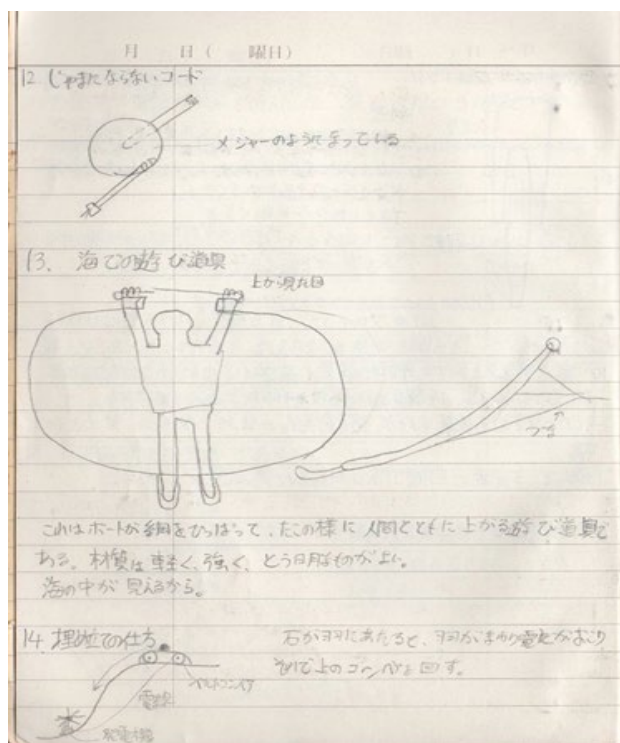 月 日( 曜日)
12. じゃまにならないコード
メジャーのようになっている
13. 海での遊び道具
上から見た図
つな
これはボートが綱をひっぱって、たこの様に人間とともに上がる遊び道具で
ある。材質は軽く、強く、とう明なものがよい。
海の中が見えるから。
14. 埋め立ての仕方
石が羽にあたると、羽がまわり電気がおこり
それで上のコンベアを回す。
ベルトコンベア
電線
発電機